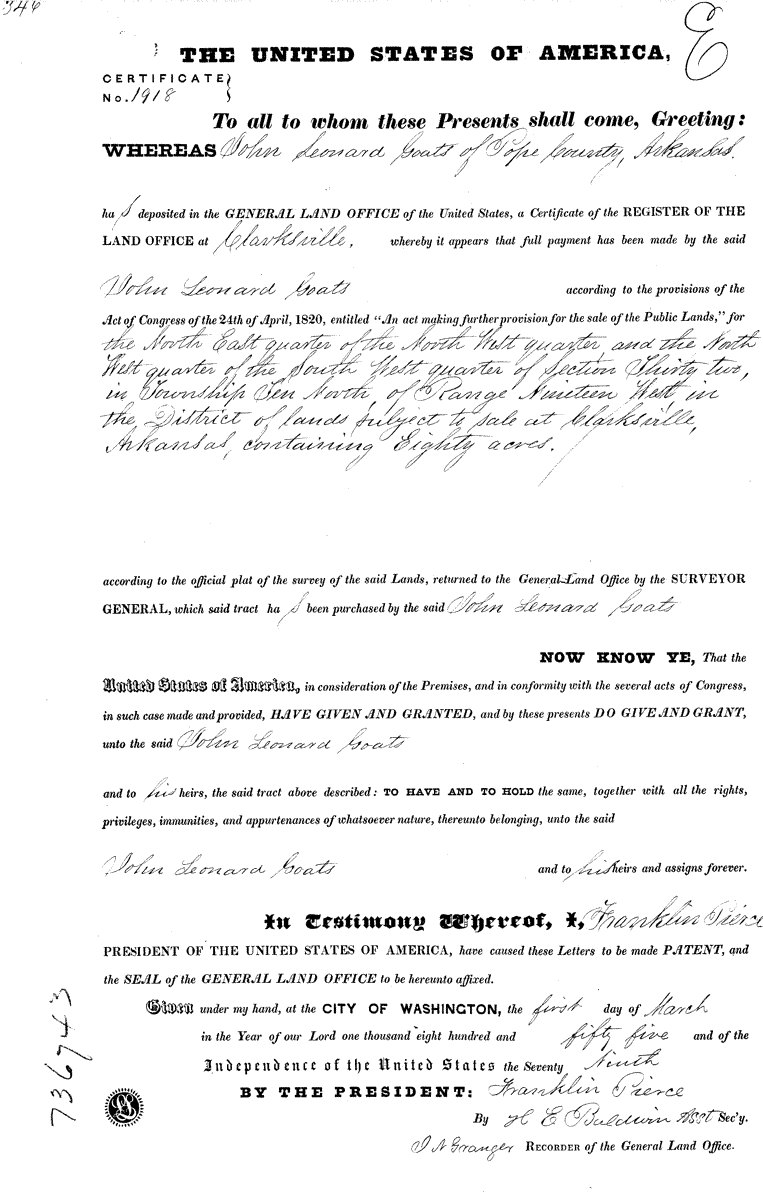 346
E
THE UNITED STATES OF AMERICA,
CERTIFICATE
No. 1918
To all to whom these Presents shall come, Greeting:
WHEREAS John Leonard Goats of Pope County, Arkansas.
ha s deposited in the GENERAL LAND OFFICE of the United States, a Certificate of the REGISTER OF THE
LAND OFFICE at Clarksville, whereby it appears that full payment has been made by the said
John Leonard Goats according to the provisions of the
Act of Congress of the 24th of April, 1820, entitled “An act making further provision for the sale of the Public Lands,” for
the North East quarter of the North West quarter and the North
West quarter of the South West quarter of Section Thirty two,
in Township Ten North, of Range Nineteen West, in
the District of lands subject to sale at Clarksville,
Arkansas, containing Eighty acres.
according to the official plat of the survey of the said Lands, returned to the General Land Office by the SURVEYOR
GENERAL, which said tract ha s been purchased by the said John Leonard Goats
NOW KNOW YE, That the
United States of America, in consideration of the Premises, and in conformity with the several acts of Congress,
in such case made and provided, HAVE GIVEN AND GRANTED, and by these presents DO GIVE AND GRANT,
unto the said John Leonard Goats
and to his heirs, the said tract above described: TO HAVE AND TO HOLD the same, together with all the rights,
privileges, immunities, and appurtenances of whatsoever nature, thereunto belonging, unto the said
John Leonard Goats and to his heirs and assigns forever.
In Testimony Whereof, I, Franklin Pierce
PRESIDENT OF THE UNITED STATES OF AMERICA, have caused these Letters to be made PATENT, and
the SEAL of the GENERAL LAND OFFICE to be hereunto affixed.
Given under my hand, at the CITY OF WASHINGTON, the first day of March
in the Year of our Lord one thousand eight hundred and fifty five and of the
Independence of the United States the Seventy Ninth
BY THE PRESIDENT: Franklin Pierce
By H E Baldwin Asst Sec'y.
J N Granger RECORDER of the General Land Office.
736743
LS